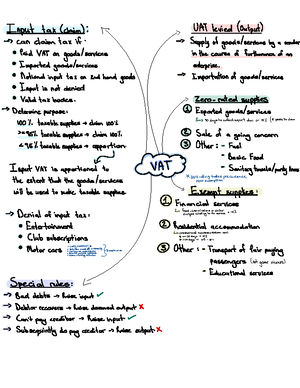 Input tax (claim):
→ can claim tax if:
• Paid VAT on goods/services
• Imported goods/services
• Notional input tax on 2nd hand goods
• Input is not denied
• Valid tax invoice.
→ Determine purpose:
100% taxable supplies → claim 100%
taxable supplies → claim 100%.
taxable supplies → apportion.
Input VAT is apportioned to
the extent that the goods/services
will be used to make taxable supplies
→ Denial of input tax:
• Entertainment
• Club subscriptions
• Motor cars
Special rules:
→ Bad debts → Raise input ✓
→ Debtor recovers → Raise output ✗
→ Can't pay creditor → Raise input ✓
→ Subsequently do pay creditor → Raise output ✗
VAT
VAT levied (Output)
→ Supply of goods/services by a vendor
in the course of furtherance of an
enterprise.
→ Importation of goods/services
Zero-rated supplies
① Exported goods/services
② Sale of a going concern
③ Other: - Fuel
- Basic Food
- Sanitary towels/panty liners
Exempt supplies:
① Financial services
② Residential accommodation
③ Other: - Transport of fare paying
passengers
- Educational services